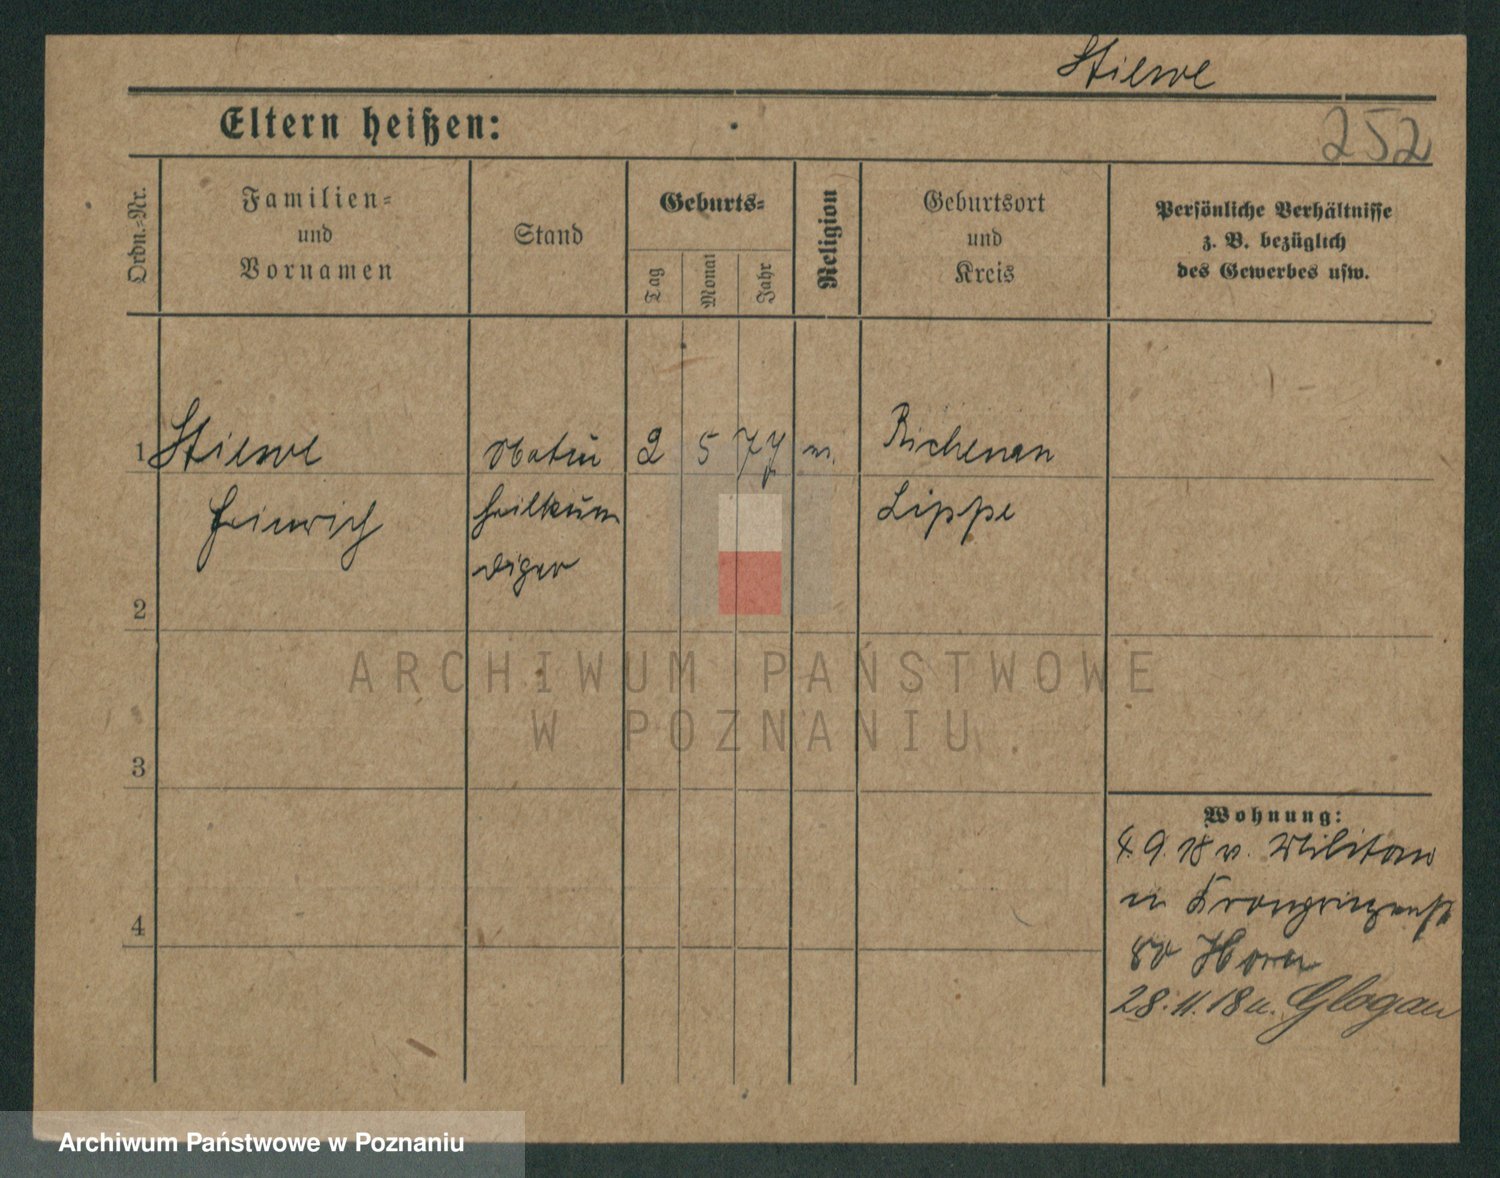 Stiewe
Eltern heißen:
252
Ordn.-Nr.
Familien-
und
Vornamen
Stand
Geburts-
Tag
Monat
Jahr
Religion
Geburtsort
und
Kreis
Persönliche Verhältnisse
z. B. bezüglich
des Gewerbes usw.
1 Stiewe Natur 2 5 77 Richenau
Heinrich heilkun Lippe
diger
2
3
4
ARCHIWUM PAŃSTWOWE
W POZNANIU
Wohnung:
4. 9. 18 v. Militär
n Kronprinzenst
80 Horn
28. 11. 18 n. Glogau
Archiwum Państwowe w Poznaniu